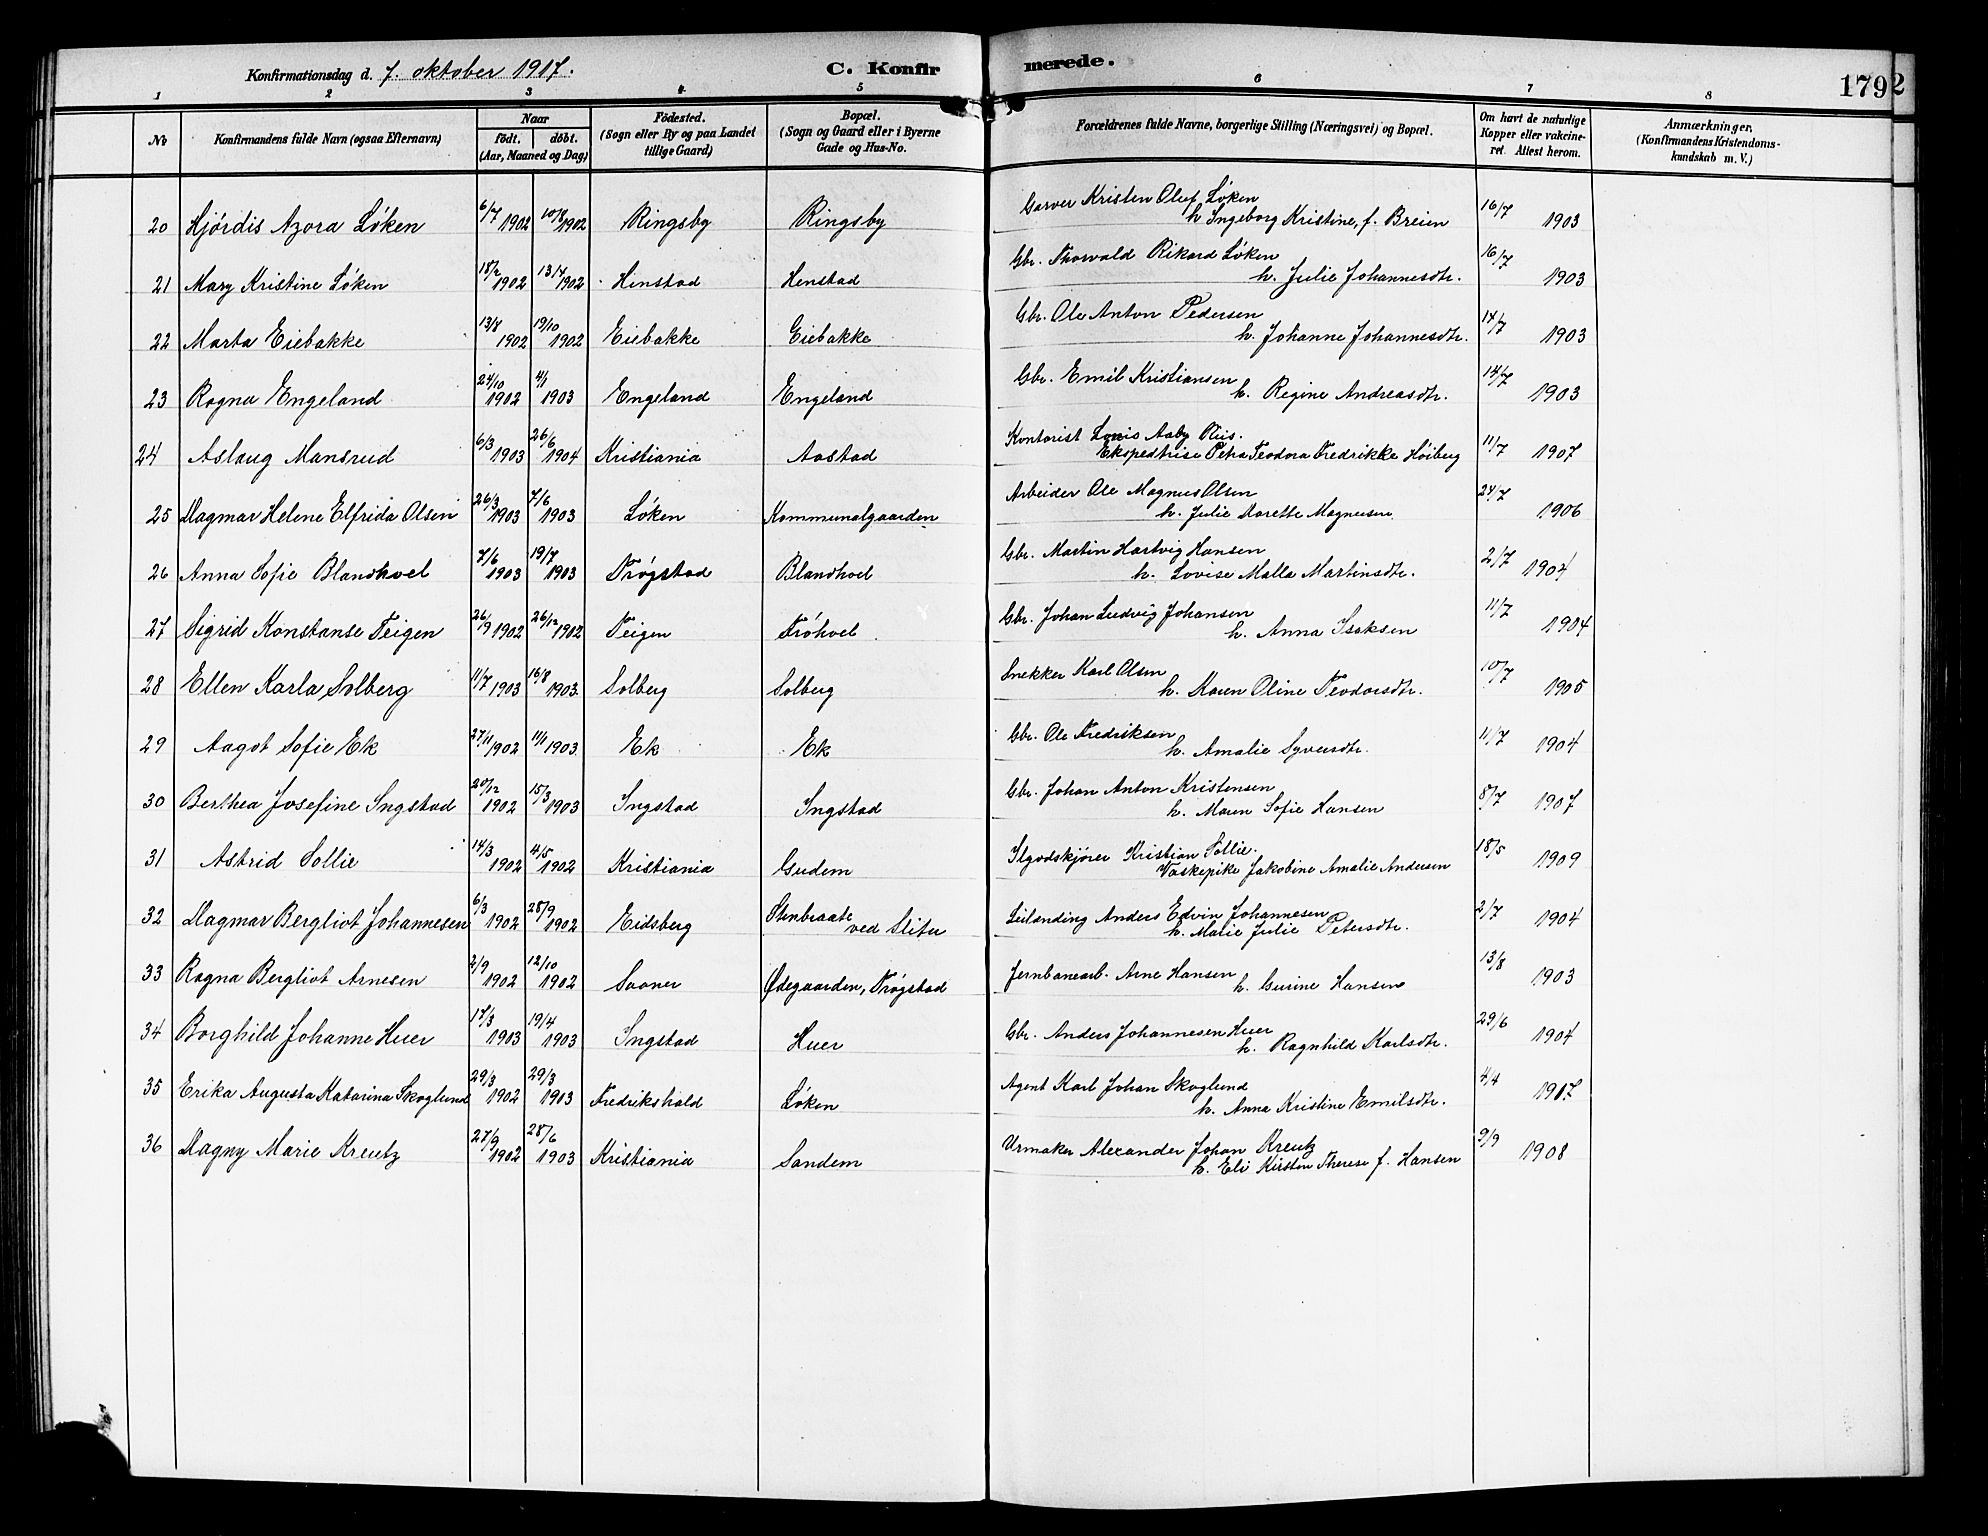 Konfirmationsdag d. 7. oktober 1917.
C. Konfirmerede.
179
1 2 3 4 5 6 7 8
No
Konfirmandens fulde Navn (ogsaa Efternavn)
Naar
født. døbt.
(Aar, Maaned og Dag)
Fødested.
(Sogn eller By og paa Landet
tillige Gaard)
Bopæl.
(Sogn og Gaard eller i Byerne
Gade og Hus-No.
Forældrenes fulde Navne, borgerlige Stilling (Næringsvei) og Bopæl.
Om havt de naturlige
Kopper eller vakcine-
ret. Attest herom.
Anmærkninger.
(Konfirmandens Kristendoms-
kundskab m. V.)
20 Hjørdis Azora Løken 6/7 1902 10/8 1902 Ringsby Ringsby Garver Kristen Oluf Løken 16/7 1903
h. Ingeborg Kristine, f. Breien
21 Mary Kristine Løken 18/2 1902 13/4 1902 Henstad Henstad Gbr. Thorvald Rikard Løken 16/7 1903
h. Julie Johannesdtr.
22 Marta Eiebakke 13/8 1902 19/10 1902 Eiebakke Eiebakke Gbr. Ole Anton Pedersen 14/7 1903
h. Johanne Johannesdtr.
23 Ragna Engeland 24/10 1902 4/1 1903 Engeland Engeland Gbr. Emil Kristiansen 14/7 1903
h. Regine Andreasdtr.
24 Aslaug Mansrud 6/3 1903 26/6 1904 Kristiania Aastad Kontorist Louis Aaby 11/7 1907
Ekspeditrise Petra Teodora Fredrikke Høiberg
25 Dagmar Helene Elfrida Olsen 26/3 1903 7/6 1903 Løken Kommunalgaarden Arbeider Ole Magnus Olsen 24/7 1906
h. Julie Dorette Magnussen
26 Anna Sofie Blandhoel 7/6 1903 19/7 1903 Trøgstad Blandhoel Gbr. Martin Hartvig Hansen 2/7 1904
h. Lovise Malla Martinsdtr.
27 Sigrid Konstanse Teigen 26/9 1902 26/12 1902 Teigen Frøhoel Gbr. Johan Ludvig Johansen 11/7 1904
h. Anna Isaksen
28 Ellen Karla Solberg 11/7 1903 16/8 1903. Solberg Solberg Snekker Karl Olsen 10/7 1905
h. Karen Oline Teodorsdtr.
29 Aagot Sofie Ek 27/11 1902 11/1 1903. Ek Ek Gbr. Ole Fredriksen 11/7 1904
h. Amalie Syversdtr.
30 Berthea Josefine Ingstad 20/12 1902 15/3 1903 Ingstad Ingstad Gbr. Johan Anton Kristensen 8/7 1907
h. Maren Sofie Hansen
31 Astrid Sollie 14/3 1902 4/5 1902 Kristiania Gudem Ilgodskjører Kristian Sollie. 18/5 1909
Vaskepike Jakobine Amalie Andersen
32 Dagmar Bergliot Johannesen 6/3 1902 28/9 1902 Eidsberg Stenbraate Leilending Anders Edvin Johannesen 2/7 1904
ved Slitu h. Marie Julie Petersdtr.
33 Ragna Bergliot Arnesen 2/9 1902 12/10 1902 Saaner Ødegaarden, Trøgstad Jernbanearb. Arne Hansen 13/8 1903
h. Gurine Hansen
34 Borghild Johanne Huer 17/3 1903 19/4 1903 Ingstad Huer Gbr. Anders Johannesen Huer 29/6 1904
h. Ragnhild Karlsdtr.
35 Erika Augusta Katarina Skoglund 29/3 1902 29/3 1903 Fredrikshald Løken Agent Karl Johan Skoglund 4/4 1917
h. Anna Kristine Emilsdtr.
36 Dagny Marie Kreutz 27/9 1902 28/6 1903 Kristiania Sandem Urmaker Alexander Johan Kreutz 9/9 1908
h. Eli Kirsten Therese f. Hansen